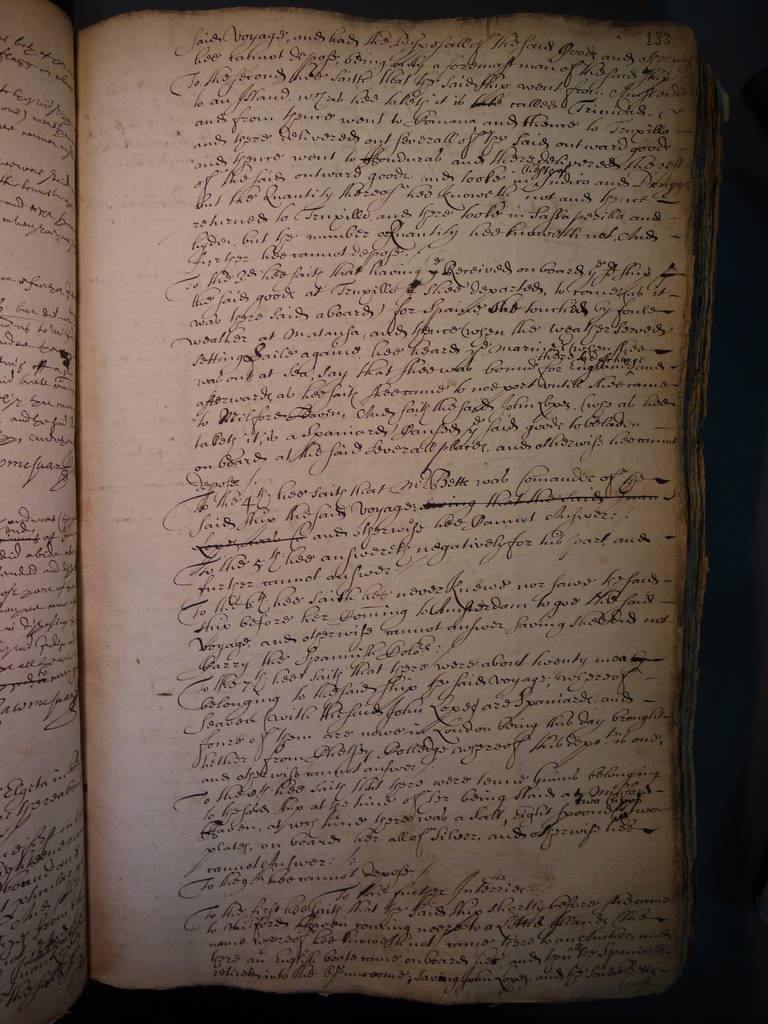 133
said voyage, and had the disposall of the said goods and otherwise
hee cannot depose, being only a foremast man of the said ship:
To the second hee saith that the said ship went from Amsterdam
to an Island, wch as hee taketh it is called Trinidad,
and from thence went to Comana and thence to Truxillo
and there delivered out severall of the said outward goods
and thence went to Honduras and there delivered the rest
of the said outward goods and tooke in Indico and
but the Quantity thereof hee knoweth not and thence
returned to Truxillo, and there tooke in Salsaperilla and
hydes, but the number or Quantity hee knoweth not, And
further hee cannot depose:/
To the 3d hee saith that having Received on board ye sd ship
the said goods at Truxillo shee departed, to come (as it
was there said aboard) for Spaine shee touched by foule
weather at Matansa, and thence (when the weather served
setting Saile againe, hee heard ye mariners (when shee
was out at Sea, say that shee was bound for England, and
afterwards as hee saith shee came to noe port untill shee came
to Milford Haven, And saith the said John Lopez, (who as hee
taketh it is a Spaniard) Caused ye said goods to be laden
on board at the said severall places, and otherwise hee cannot
depose:/
To the 4th hee saith that Mr Bett was Comander of the
said ship the said voyage, saving that the said
and otherwise hee Cannot Answer:/
To the 5th hee answereth negatively for his part, and
further cannot answer
To the 6th hee saith hee never knewe nor sawe the said
ship before her Comming to Amsterdam to goe the said
voyage, and otherwise cannot answer, saving shee did not
Carry the Spanish Colors:/
To the 7th hee saith that there were about twenty men
belonging to the said ship the said voyage, whereof
Seaven (with the said John Lopez) are Spaniards, and
foure of them are nowe in London being this day brought
hither from Chelsey Colledge, whereof this depont is one,
and otherwise cannot answer
To the 8th hee saith that there were tenne Gunns belonging
to the said ship at the time of her being staid at Milford
Haven, at wch time there was a salt, eight spoones two
plates, on board her all of silver, and otherwise hee
cannot Answer:/
To the 9th hee cannot depose:/
To the further Interries
To the first hee saith that the said ship shortly before shee came
to Milford Haven coming neere to a Little Island (the
name whereof hee knoweth not) came there to an Anchor, and
there an English boate came on board her, and the Spaniards
retired into the, saving John Lopez, and the said Bett